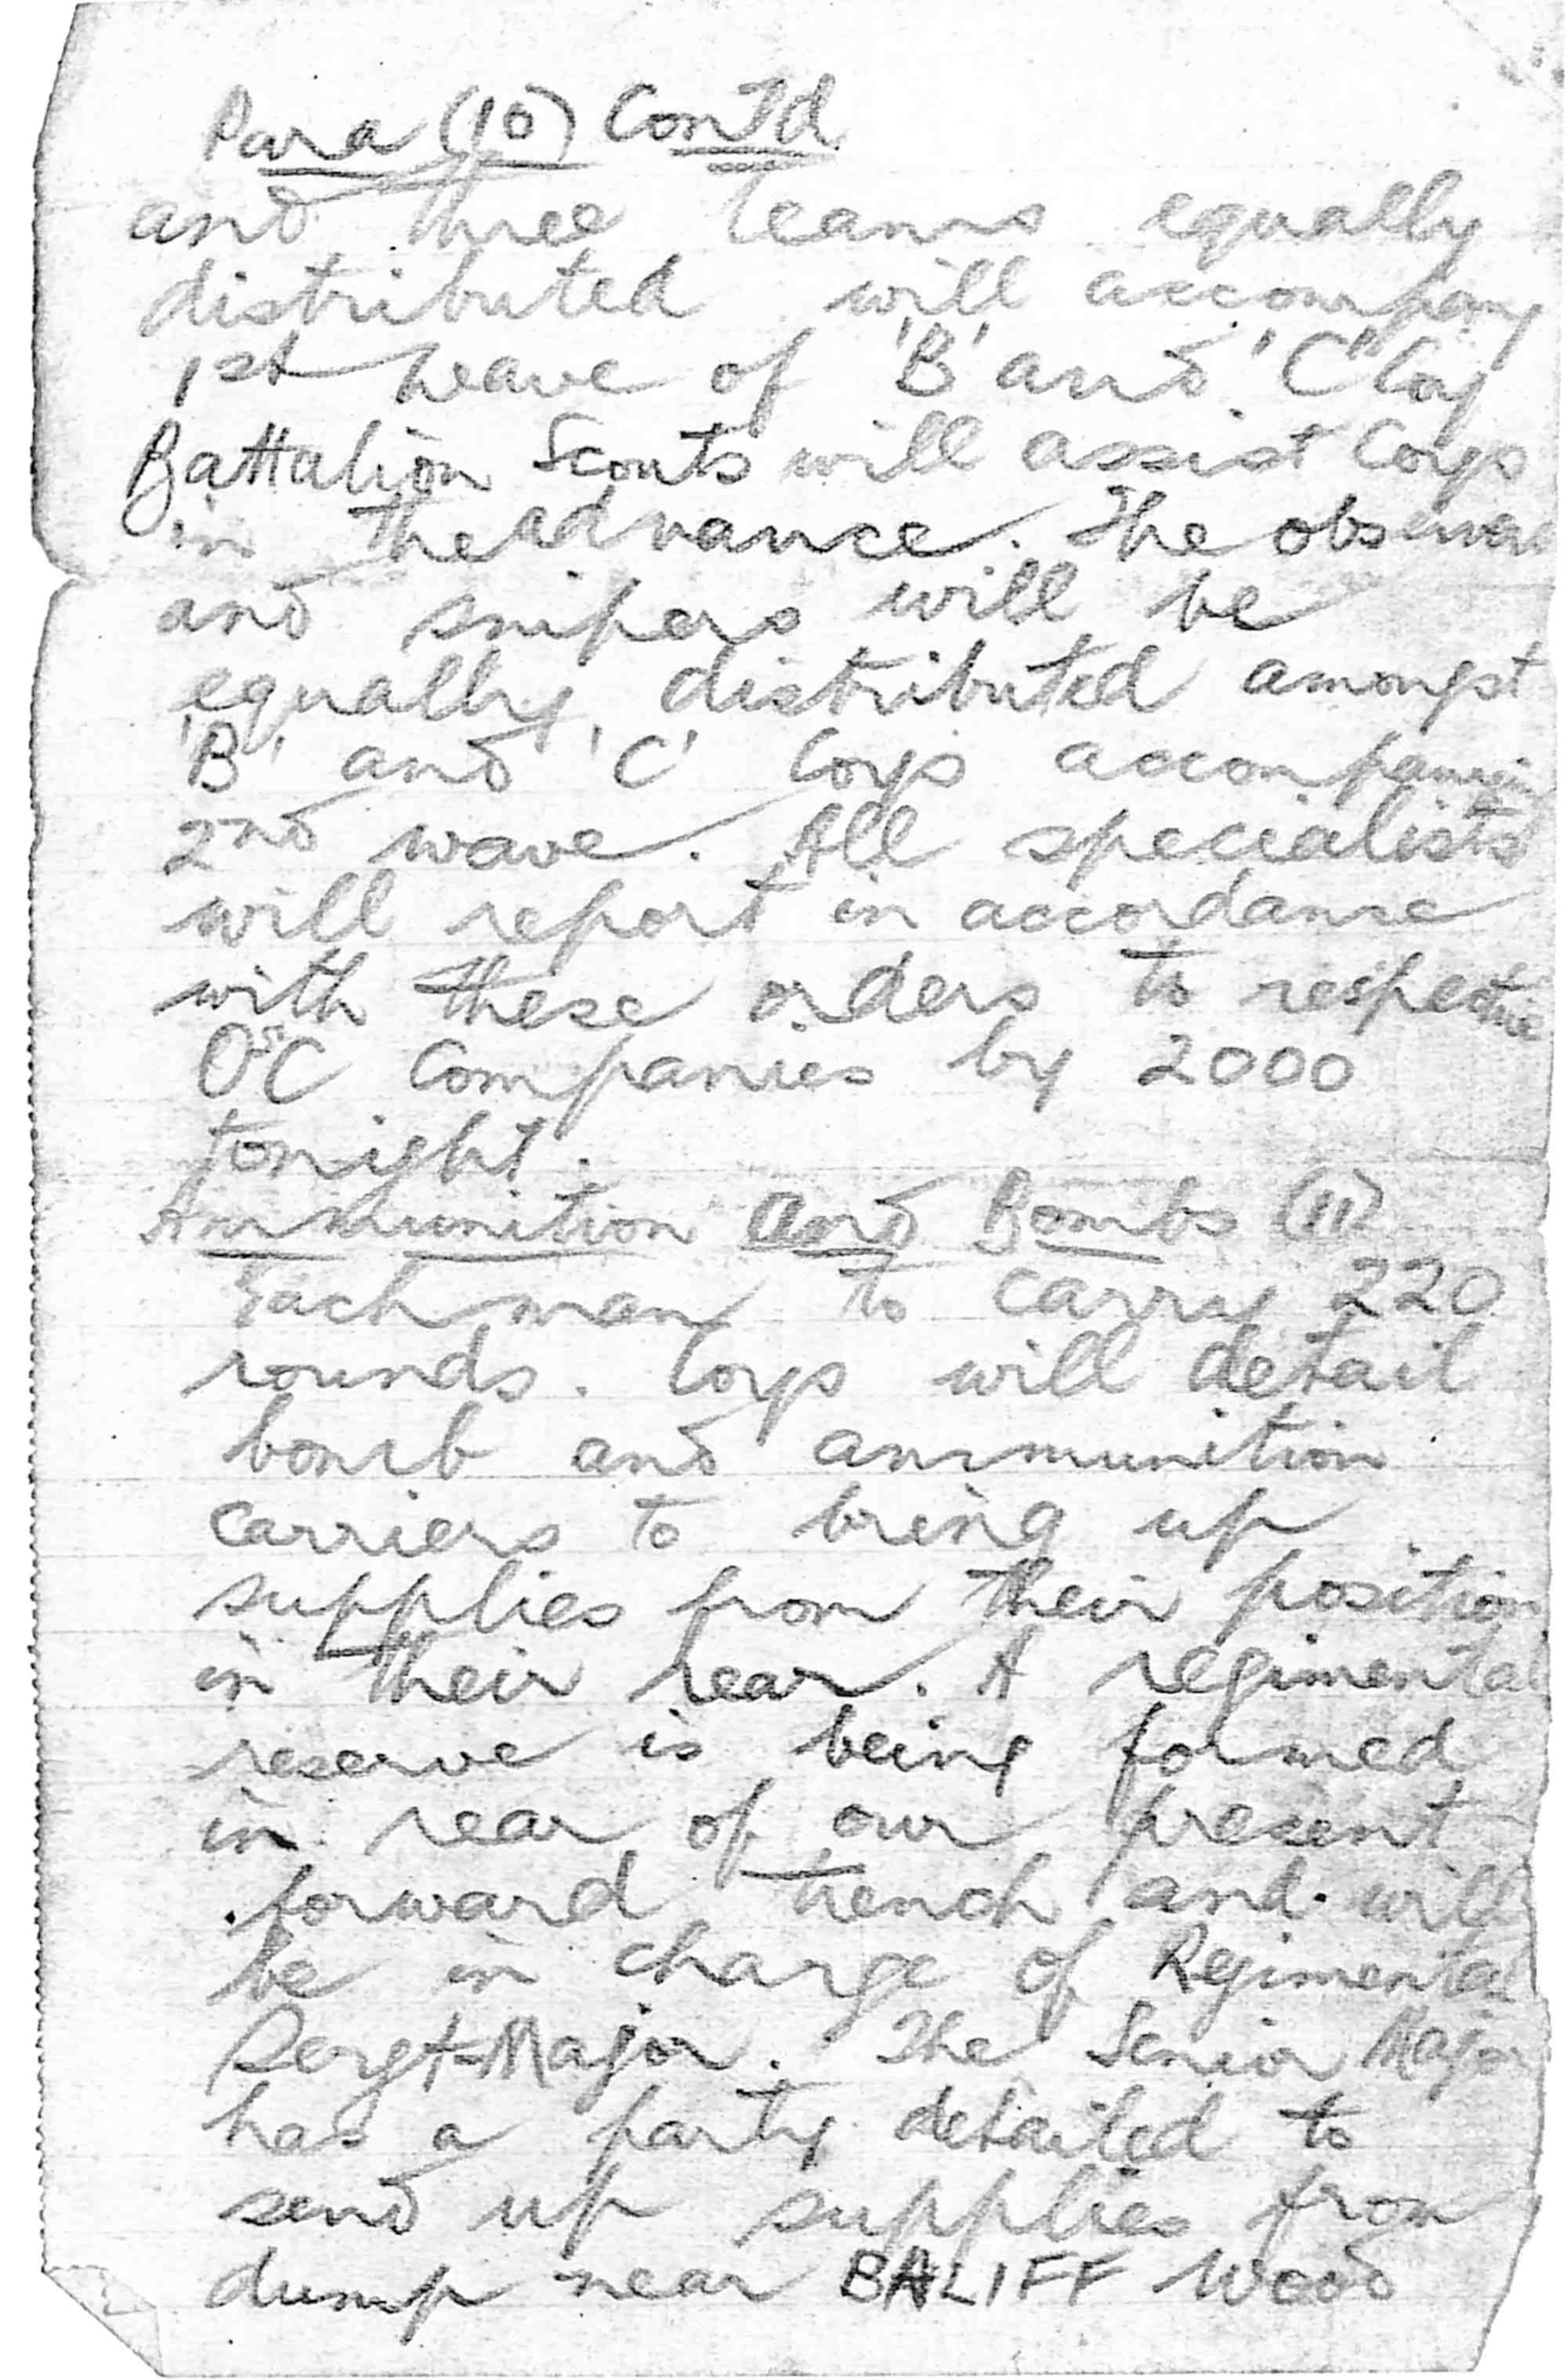 Para (10) Cont'd
and three teams equally
distributed will accompany
1st wave of 'B' and 'C' Coy
Battalion Scouts will assist Coys
in the advance. The
and snipers will be
equally distributed amongst
'B' and 'C' Coys
2nd wave. All specialists
will report in accordance
with these orders to respective
OsC Companies by 2000
tonight.
Ammunition and Bombs (11)
Each man to carry 220
rounds. Coys will detail
bomb and ammunition
carriers to bring up
supplies from their position
in their rear. A regimental
reserve is being formed
in rear of our present
forward trench and will
be in charge of Regimental
Sergt-Major. The Senior Major
has a party detailed to
send up supplies from
dump near BALIFF Wood